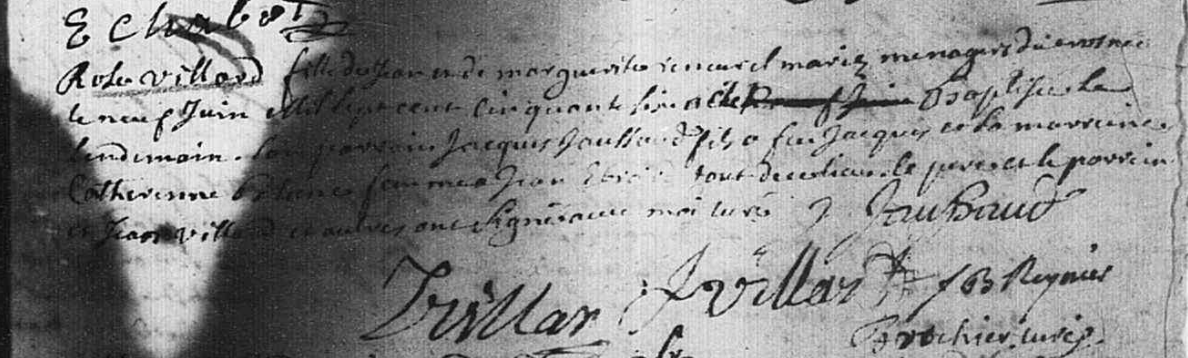 E Chabot
Rose Villard fille de Jean et de marguerite mariez menagers
le neuf Juin Mil sept cent cinquante six a été Baptisée le
lendemain. Son parrain Jacques Jaubaud fils a feu Jacques et la marraine
Catherinne femme a Jean tout de ce lieu. le pere et le parrain
et Jean Villard et autres ont signé avec moi curé J Jaubaud
Villar J villar J B Reynier
Brochier. curé.